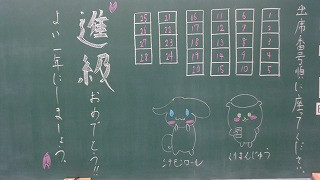 出席番号順に座ってください。
25 21 16 11 6 1
26 22 17 12 7 2
27 23 18 13 8 3
28 24 19 14 9 4
20 15 10 5
シナモンロール
進級おめでとう!!
よい一年にしましょう。